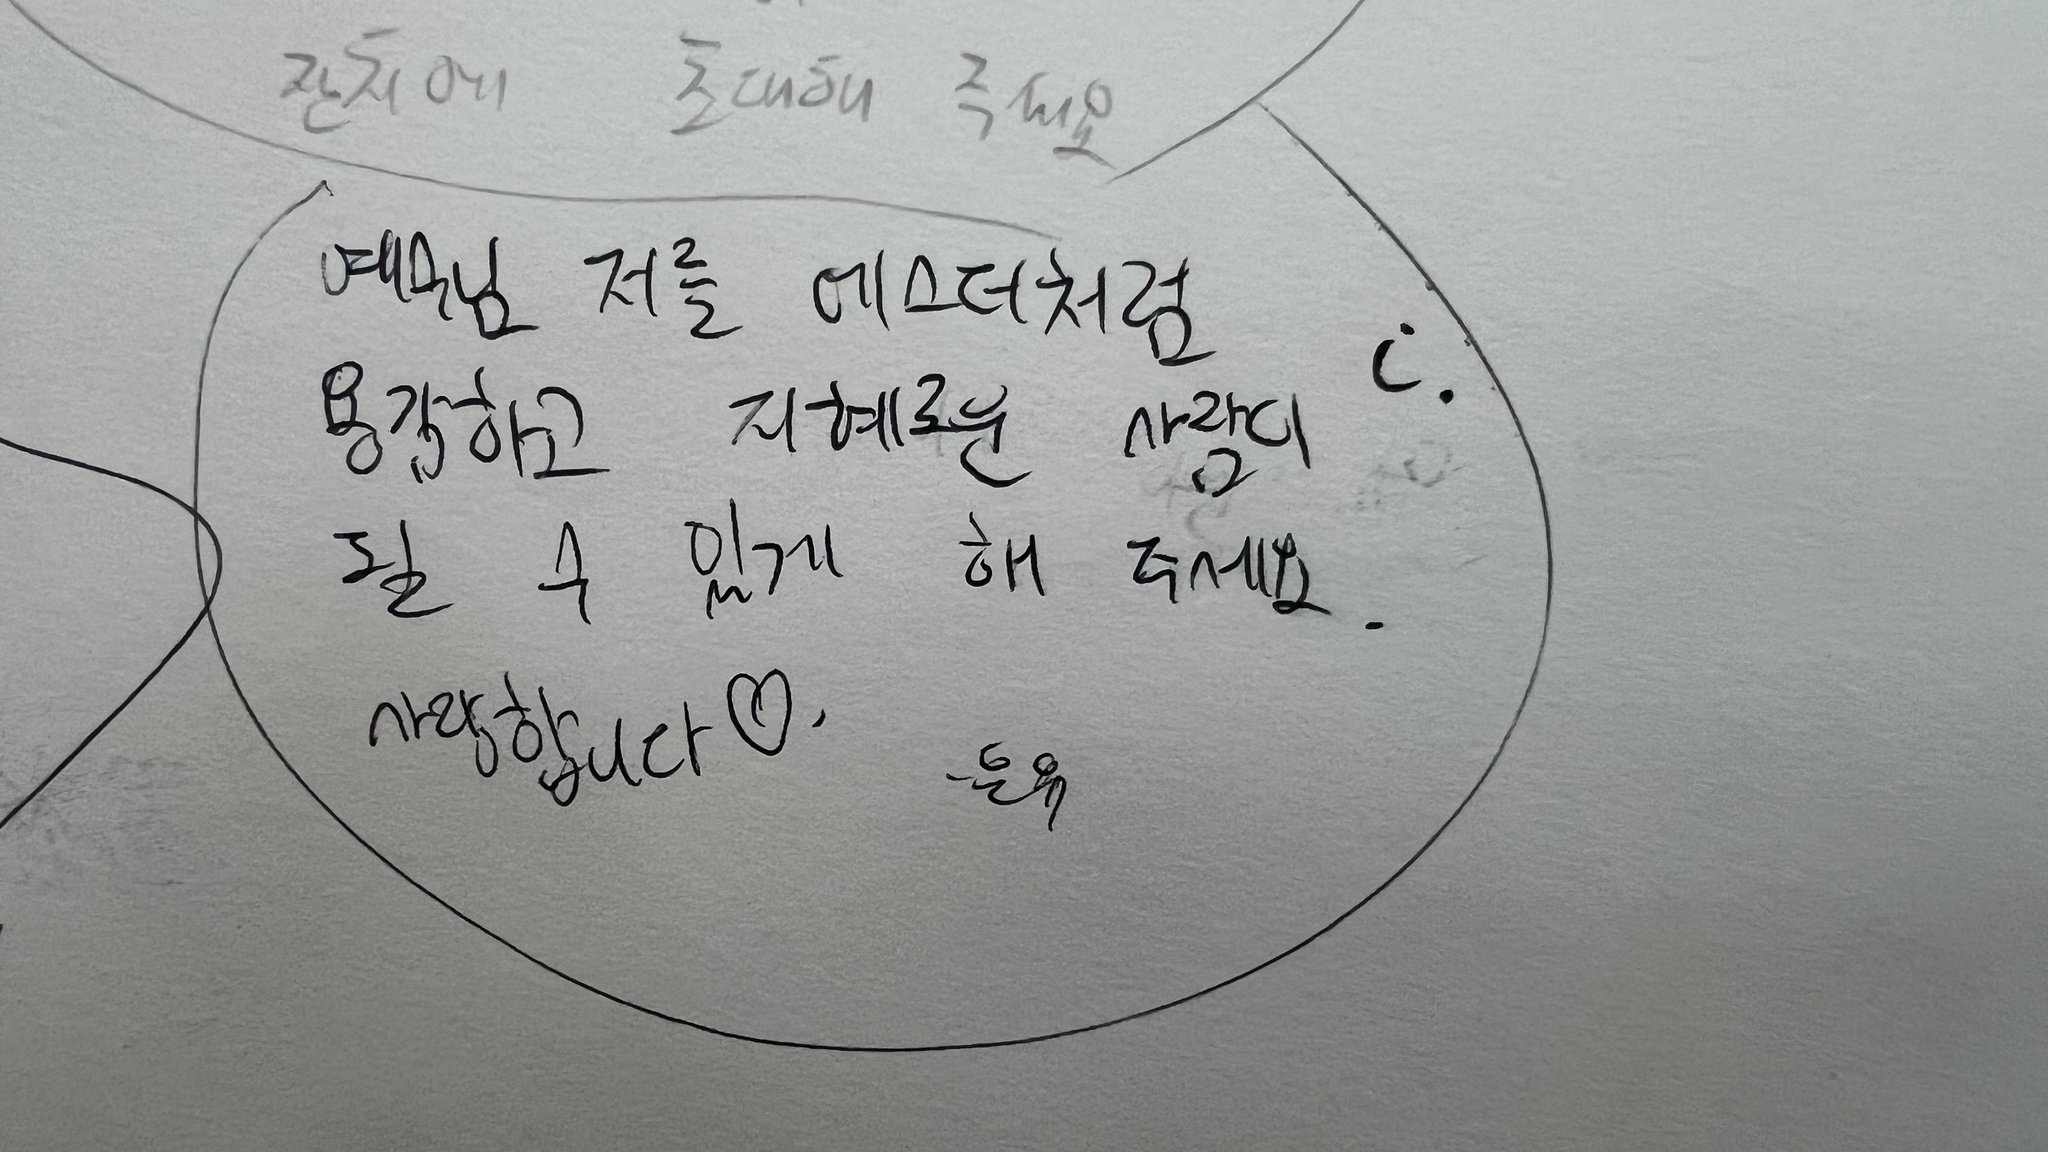 잔치에 초대해 주세요
예수님 저를 에스터처럼
용감하고 지혜로운 사람이
될 수 있게 해 주세요.
사랑합니다♡.